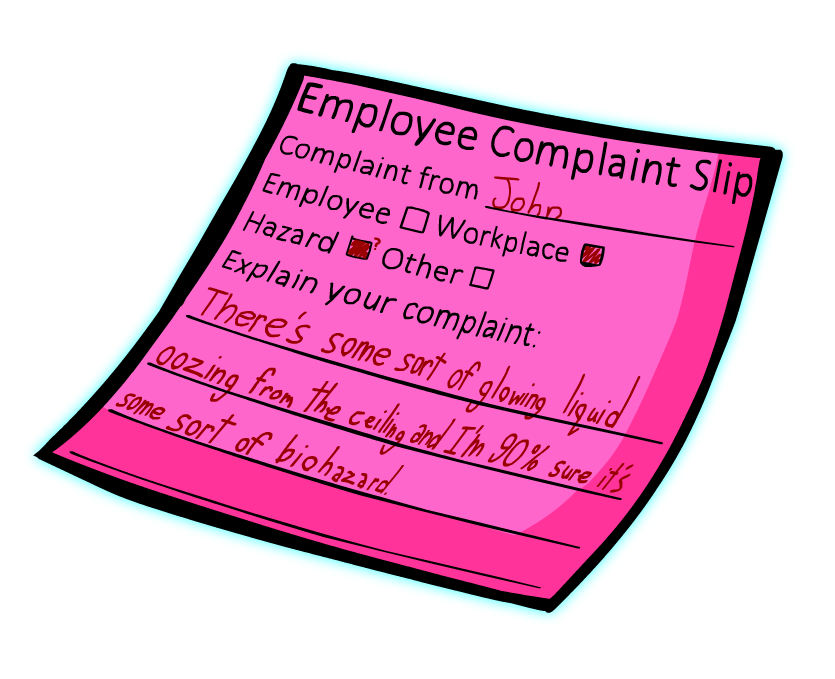 Employee Complaint Slip
Complaint from John
Employee ☐ Workplace ☒
Hazard ☒? Other ☐
Explain your complaint:
There's some sort of glowing liquid
oozing from the ceiling and I'm 90% sure it's
some sort of biohazard.